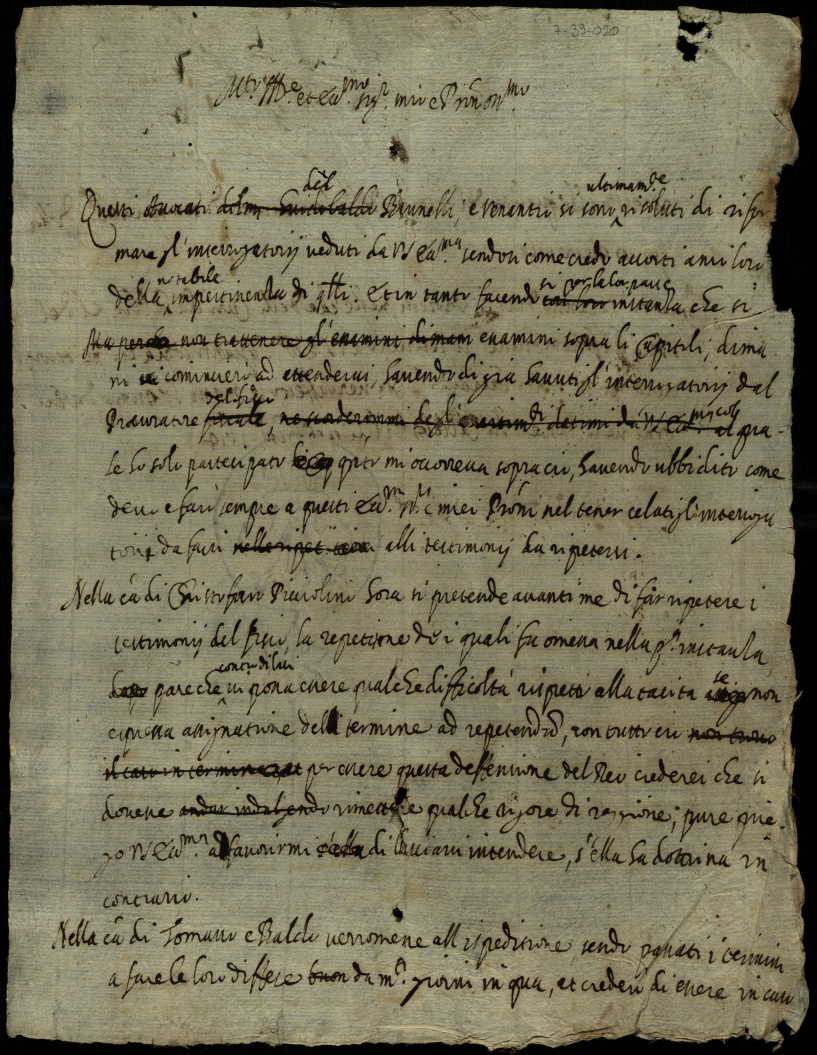 7-39-020
M.to Ill.re et Ecc.mo sig.r mio e Pron oss.mo
Questi Avocati del Brunelli, e Venantii si sono ultimam.te risoluti di rifor
mare gl'interrogatorij veduti da VS Ecc.ma sendosi come credo accorti anco loro
della notabile impertinenza di q.lli. Et in tanto facendo si per la lor parte instanza che si
esamini sopra li Capitoli, dima
ni comincierò ad attendervi, havendo di già havuti gl'interrogatorij dal
Procuratore del fisco, al qua
le ho solo participato q.to mi occorreva sopra ciò, havendo ubbidito come
devo e farò sempre a questi Ecc.mi miei Proni nel tener celati gl'interroga
torij da farsi alli testimonij da ripetersi.
Nella cã di Christofaro Picciolini hora si pretende avanti me di far ripetere i
testimonij del fisco, la repetitione de i quali fu omessa nella p.a instanza,
pare che contro di lui vi possa essere qualche difficoltà rispetto alla tacita se non
espressa assignatione del termine ad repetendũ, con tutto ciò
per essere questa deffensione del Reo crederei che si
dovesse rimettere qualche rigore di raggione; pure prie
go VS Ecc.ma a favorirmi di lasciarsi intendere, s'ella ha dottrina in
contrario.
Nella cã di Tomasso e Baldo verromene all'ispeditione, sendo passati i termini
a fare le loro diffese da m.ti giorni in qua, et crederò di essere in caso